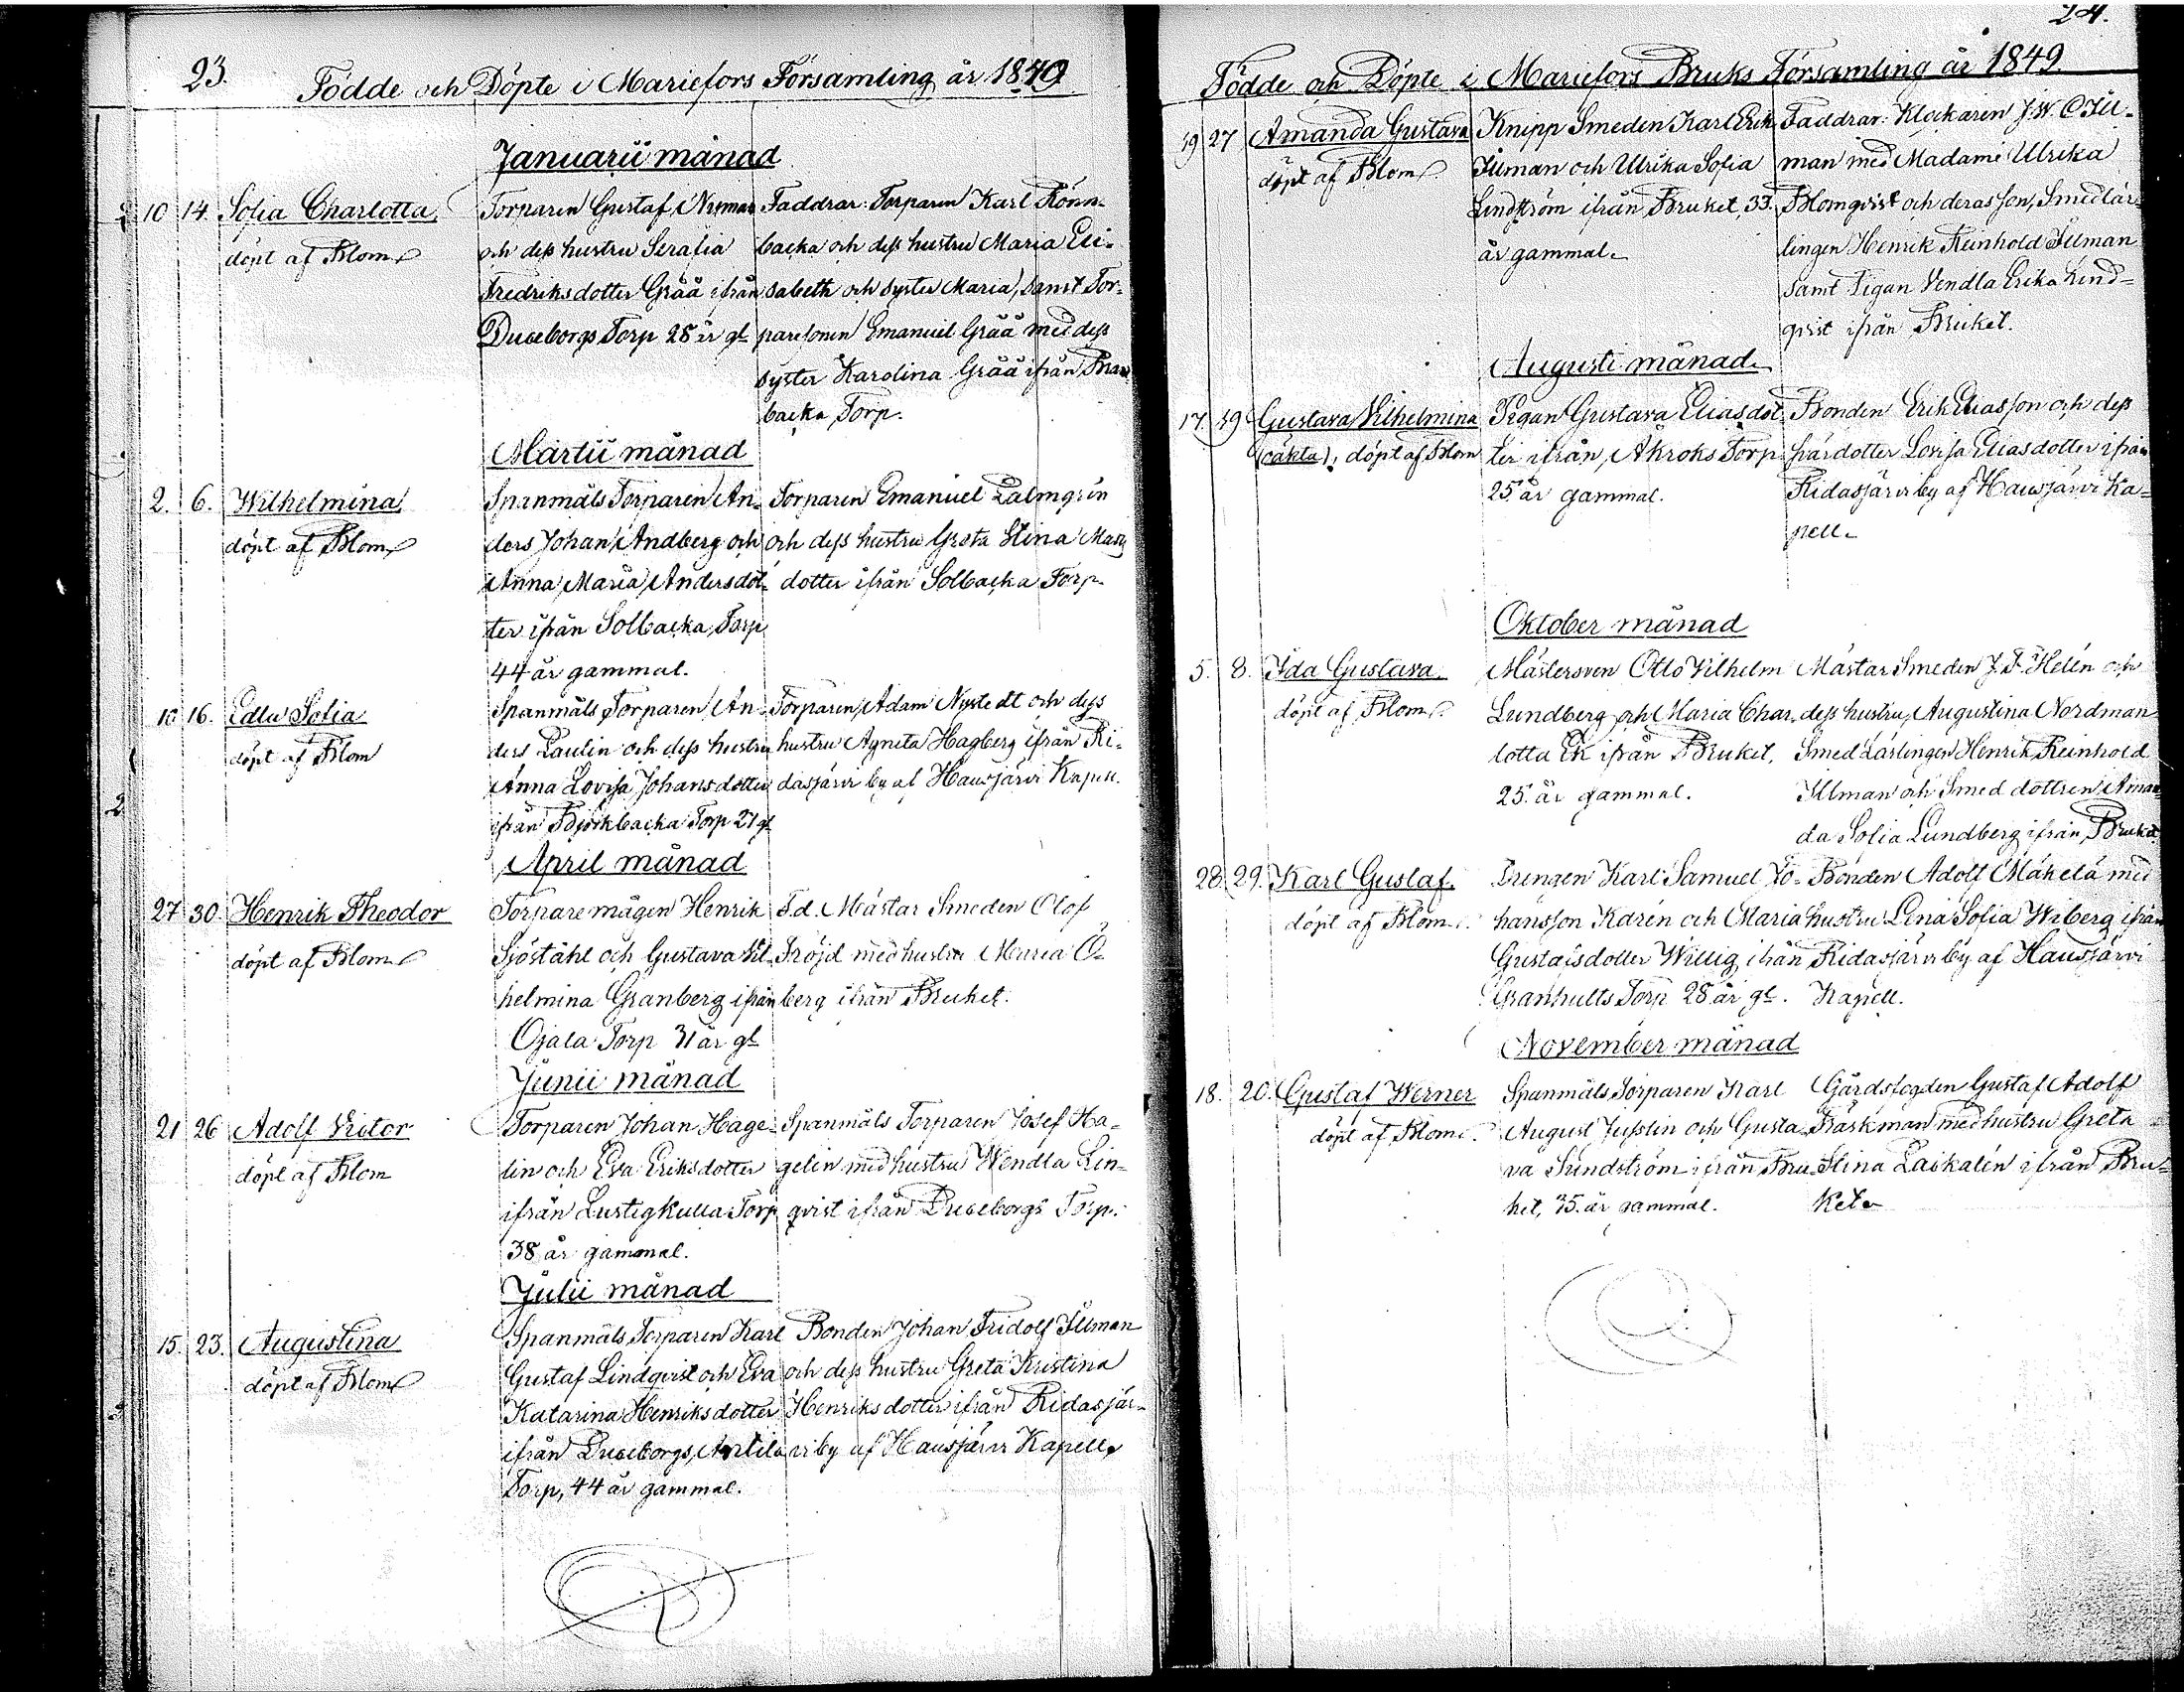 23.
Födde och Döpte i Mariefors Församling år 1849
Januarii månad
10 14. Sofia Charlotta, Torparen Gustaf Nyman Faddrar: Torparen Karl Rönn-
döpt af Blom och dess hustru Serafia backa och dess hustru Maria Eli-
Fredriksdotter Gråå ifrån sabeth och syster Maria, samt Tor-
Duveborgs Torp 28 år gl paresonen Emanuel Gråå med dess
syster Karolina Gråå ifrån
backa Torp.
Martii månad
2. 6. Wilhelmina, Spanmåls Torparen An- Torparen Emanuel Palmgrén
döpt af Blom ders Johan Andberg och och dess hustru Greta Stina Matts
Anna Maria Andersdot- dotter ifrån Solbacka Torp.
ter ifrån Solbacka Torp
44 år gammal.
10 16. Edla Sofia Spanmåls Torparen An- Torparen Adam Nystedt och dess
döpt af Blom ders Paulin och dess hustru hustru Agneta Hagberg ifrån Ri-
Anna Lovisa Johansdotter dasjärvi by af Hausjärvi Kapell.
ifrån Björkbacka Torp 21 gl
April månad
27 30. Henrik Theodor Torparemågen Henrik F.d. Mästar Smeden Olof
döpt af Blom Sjöståhl och Gustava Vil- Fröjd med hustru Maria Ö-
helmina Granberg ifrån berg ifrån Bruket.
Ojala Torp 31 år gl
Junii månad
21 26 Adolf Victor Torparen Johan Hage- Spanmåls Torparen Josef Ha-
döpt af Blom lin och Eva Eriksdotter gelin med hustru Wendla Lin-
ifrån Lustigkulla Torp qvist ifrån Duveborgs Torp.
38 år gammal.
Julii månad
15. 23. Augustina Spanmåls Torparen Karl Bonden Johan Fridolf Illman
döpt af Blom Gustaf Lindqvist och Eva och dess hustru Greta Kristina
Katarina Henriksdotter Henriksdotter ifrån Ridasjär-
ifrån Duveborgs vi by af Hausjärvi Kapell.
Torp, 44 år gammal.
24.
Födde och Döpte i Mariefors Bruks Församling år 1849.
19 27 Amanda Gustava Knipp Smeden Karl Erik Faddrar: Klockaren J.W. Ill-
döpt af Blom Illman och Ulrika Sofia man med Madame Ulrika
Lindström ifrån Bruket, 33. Blomqvist och deras son, Smedlär-
år gammal. lingen Henrik Reinhold Illman
samt Pigan Vendla Erika Lind-
qvist ifrån Bruket.
Augusti månad.
17. 19 Gustava Vilhelmina Pigan Gustava Eliasdot- Bonden Erik Eliasson och dess
(oäkta), döpt af Blom ter ifrån Åkroks Torp dotter Lovisa Eliasdotter ifrån
25 år gammal. Ridasjärvi by af Hausjärvi Ka-
pell.
Oktober månad
5. 8. Ida Gustava. Mästersven Otto Vilhelm Mästar Smeden J. F. Helén och
döpt af Blom. Lundberg och Maria Char- dess hustru Augustina Nordman
lotta Ek ifrån Bruket, Smed Lärlingen Henrik Reinhold
25. år gammal. Illman och Smed dottren Aman-
da Sofia Lundberg ifrån Bruket.
28. 29. Karl Gustaf. Drengen Karl Samuel Jo- Bonden Adolf Mäkelä med
döpt af Blom. hansson Karén och Maria hustru Lena Sofia Wiberg ifrån
Gustafsdotter Willig ifrån Ridasjärvi by af Hausjärvi
Granhults Torp 28 år gl. Kapell.
November månad
18. 20. Gustaf Werner Spanmåls Torparen Karl Gårdsfogden Gustaf Adolf
döpt af Blom. August Jusslin och Gusta- Träskman med hustru Greta
va Sundström ifrån Bru- Stina Laskalén ifrån Bru-
ket, 35. år gammal. ket.